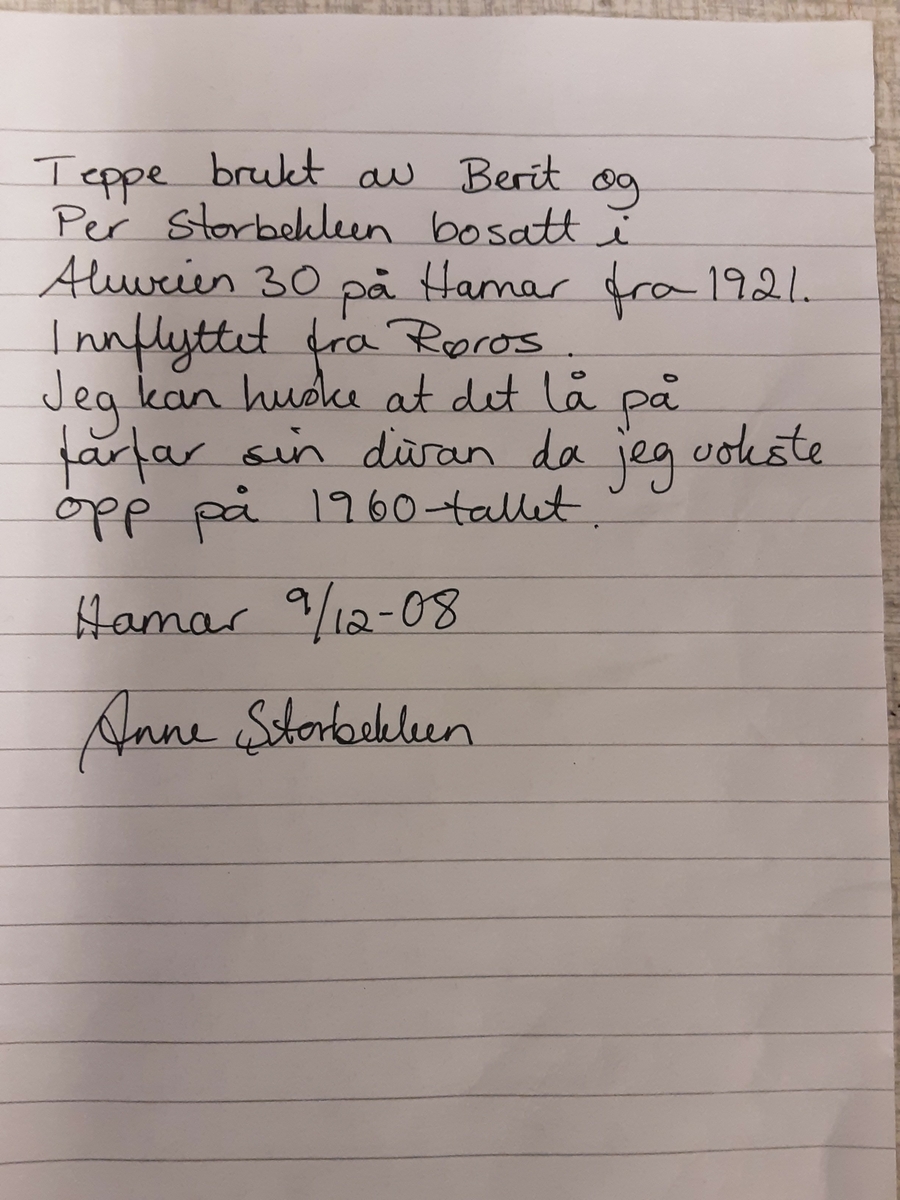 Teppe brukt av Berit og
Per Storbekken bosatt i
Aluveien 30 på Hamar fra 1921.
Innflyttet fra Røros.
Jeg kan huske at det lå på
farfar sin divan da jeg vokste
opp på 1960-tallet.
Hamar 9/12-08
Anne Storbekken